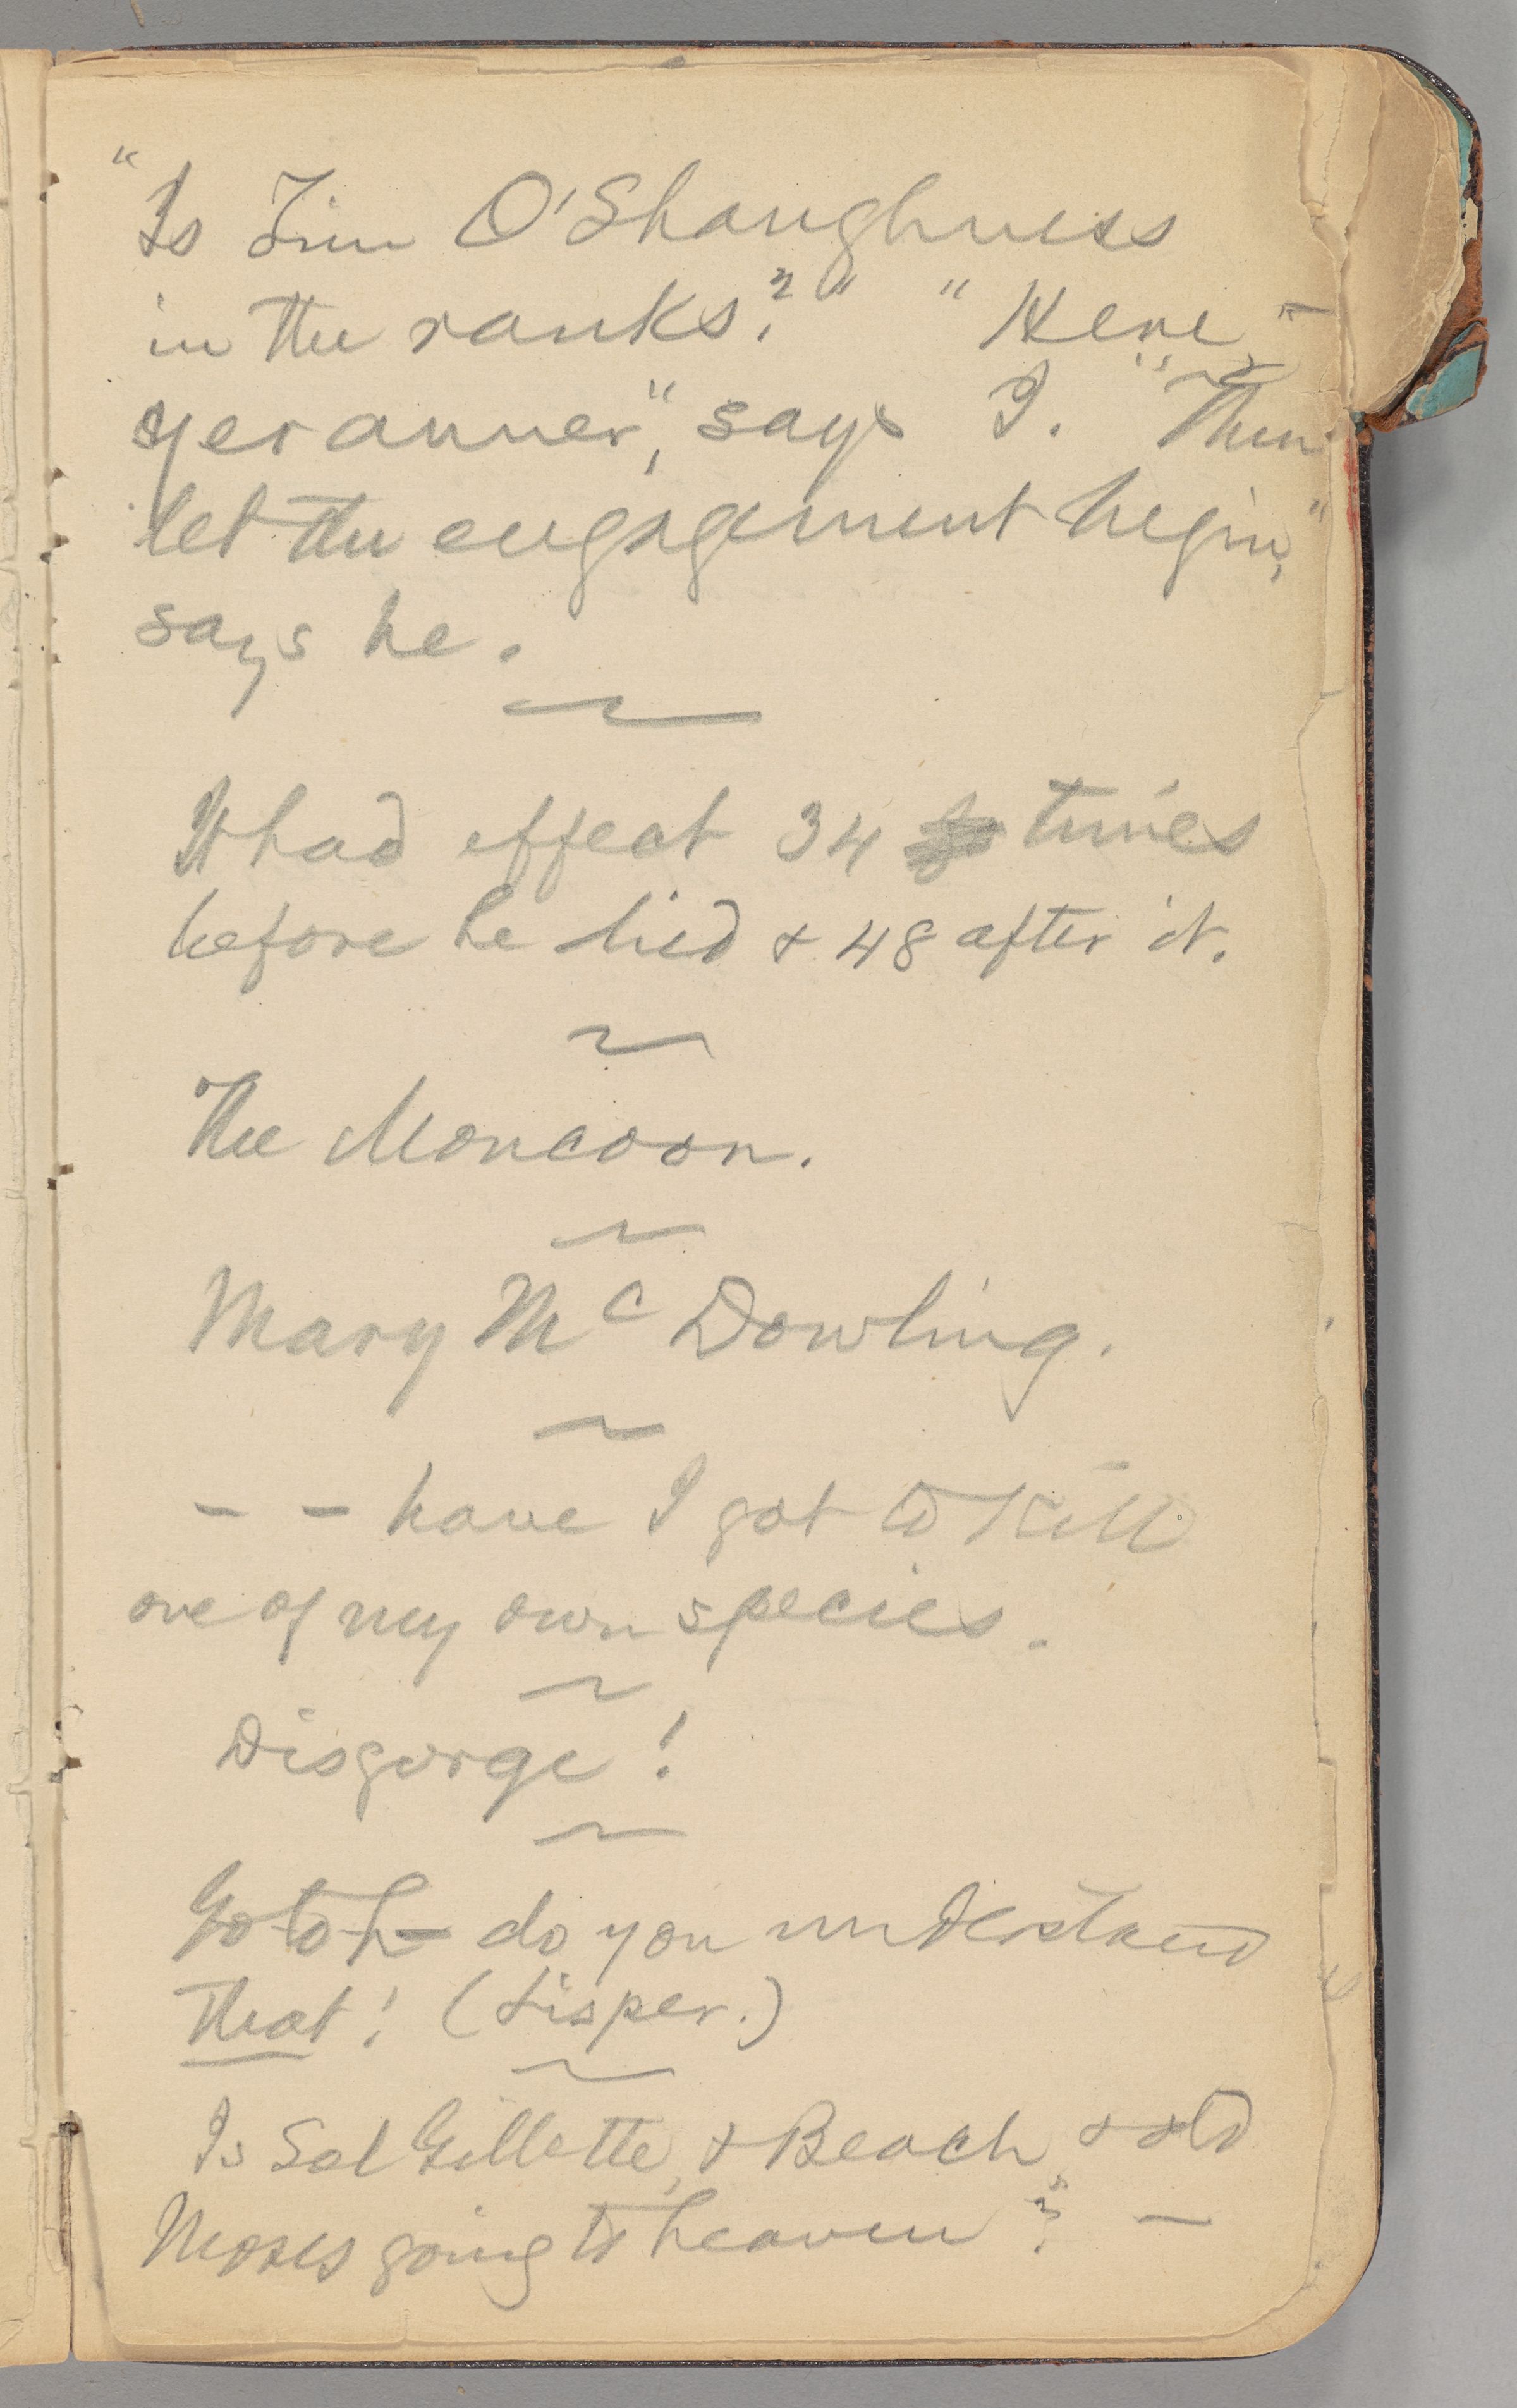 "Is Tim O'Shaughness
in the ranks?" "Here,
yer anner," says I. "Then
let the engagement begin,"
says he.
It had effect 34 times
before he lied & 48 after it.
The Moncoon.
Mary Mc Dowling.
- - have I got to kill
one of my own species.
Disgorge!
Go to h— do you understand
that! (Lisper.)
Is Sol Gillette, & Beach & old
Moses going to heaven? —